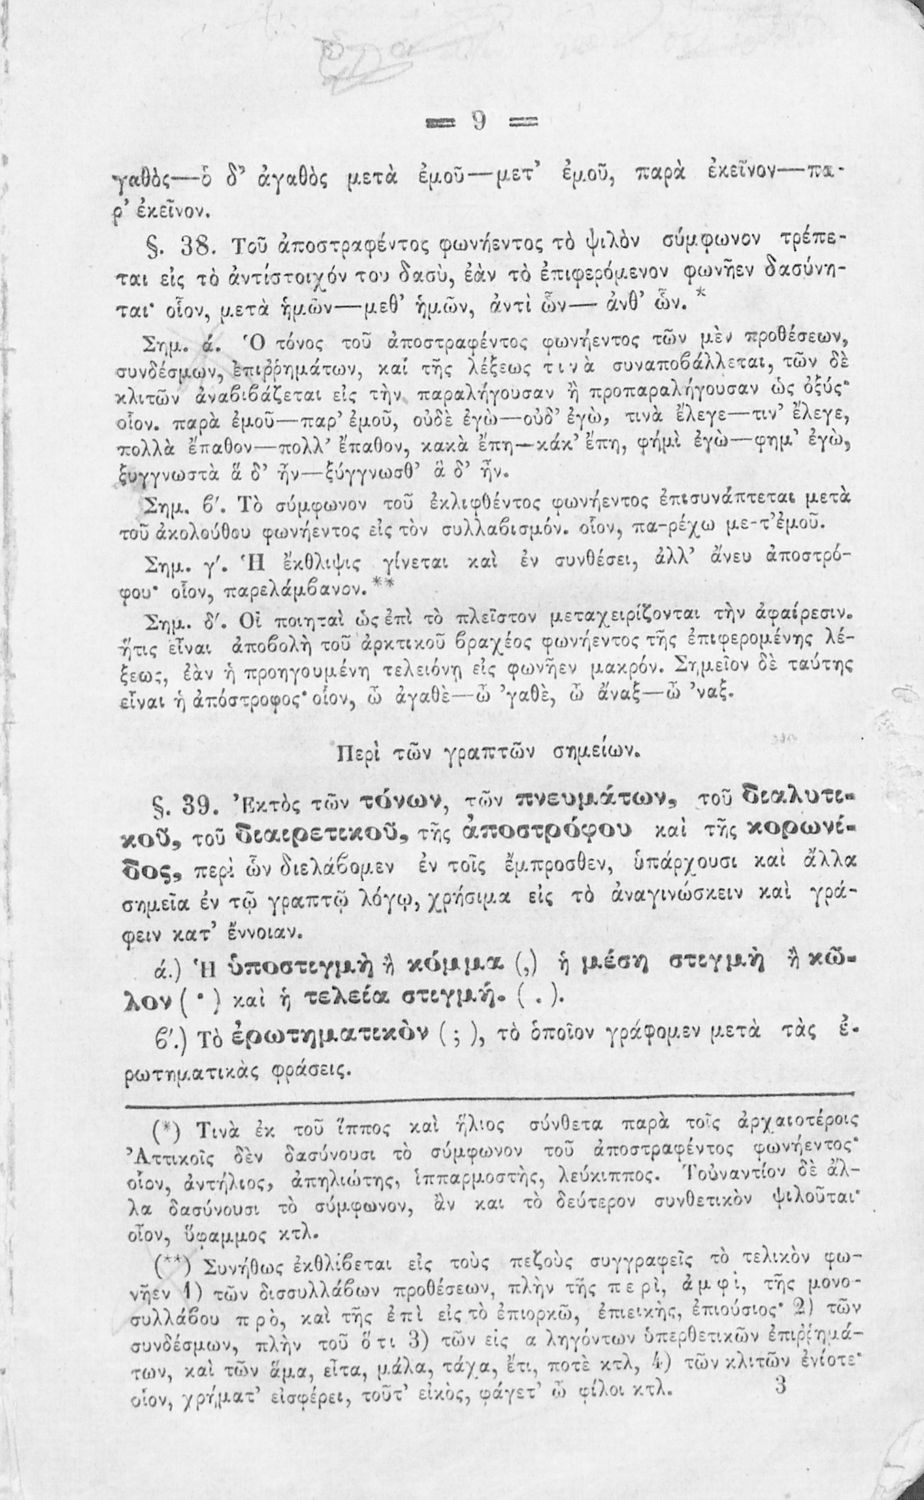 = 9 =
γαθὸς—ὁ δ’ ἀγαθὸς μετὰ ἐμοῦ—μετ’ ἐμοῦ, παρὰ ἐκεῖνον—πα-
ρ’ ἐκεῖνον.
§. 38. Τοῦ ἀποστραφέντος φωνήεντος τὸ ψιλὸν σύμφωνον τρέπε-
ται εἰς τὸ ἀντίστοιχόν του δασὺ, ἐὰν τὸ ἐπιφερόμενον φωνῆεν δασύνη-
ται· οἷον, μετὰ ἡμῶν—μεθ’ ἡμῶν, ἀντὶ ὧν— ἀνθ’ ὧν. *
Σημ. ά. Ὁ τόνος τοῦ ἀποστραφέντος φωνήεντος τῶν μὲν προθέσεων,
συνδέσμων, ἐπιῤῥημάτων, καὶ τῆς λέξεως τινὰ συναποβάλλεται, τῶν δὲ
κλιτῶν ἀναβιβάζεται εἰς τὴν παραλήγουσαν ἢ προπαραλήγουσαν ὡς ὀξύς·
οἷον. παρὰ ἐμοῦ—παρ’ ἐμοῦ, οὐδὲ ἐγὼ—οὐδ’ ἐγὼ, τινὰ ἔλεγε—τιν’ ἔλεγε,
πολλὰ ἔπαθον—πολλ’ ἔπαθον, κακὰ ἔπη—κάκ’ ἔπη, φήμὶ ἐγὼ—φημ’ ἐγὼ,
ξυγγνωστὰ ἃ δ’ ἦν—ξύγγνωσθ’ ἃ δ’ ἦν.
Σημ. β΄. Τὸ σύμφωνον τοῦ ἐκλιφθέντος φωνήεντος ἐπισυνάπτεται μετὰ
τοῦ ἀκολούθου φωνήεντος εἰς τὸν συλλαβισμόν. οἷον, πα-ρέχω με-τ’ἐμοῦ.
Σημ. γ΄. Ἡ ἔκθλιψις γίνεται καὶ ἐν συνθέσει, ἀλλ’ ἄνευ ἀποστρό-
φου· οἷον, παρελάμβανον. **
Σημ. δ΄. Οἱ ποιηταὶ ὡς ἐπὶ τὸ πλεῖστον μεταχειρίζονται τὴν ἀφαίρεσιν.
ἥτις εἶναι ἀποβολὴ τοῦ ἀρκτικοῦ βραχέος φωνήεντος τῆς ἐπιφερομένης λέ-
ξεως, ἐὰν ἡ προηγουμένη τελειόνῃ εἰς φωνῆεν μακρόν. Σημεῖον δὲ ταύτης
εἶναι ἡ ἀπόστροφος· οἷον, ὦ ἀγαθὲ—ὦ ’γαθὲ, ὦ ἄναξ—ὦ ’ναξ.
Περὶ τῶν γραπτῶν σημείων.
§. 39. Ἐκτὸς τῶν τόνων, τῶν πνευμάτων, τοῦ διαλυτι-
κοῦ, τοῦ διαιρετικοῦ, τῆς ἀποστρόφου καὶ τῆς κορωνί-
δος, περὶ ὧν διελάβομεν ἐν τοῖς ἔμπροσθεν, ὑπάρχουσι καὶ ἄλλα
σημεῖα ἐν τῷ γραπτῷ λόγῳ, χρήσιμα εἰς τὸ ἀναγινώσκειν καὶ γρά-
φειν κατ’ ἔννοιαν.
ά.) Ἡ ὑποστιγμὴ ἢ κόμμα (,) ἡ μέση στιγμὴ ἢ κῶ-
λον ( · ) καὶ ἡ τελεία στιγμή. ( . ).
β΄.) Τὸ ἐρωτηματικὸν ( ; ), τὸ ὁποῖον γράφομεν μετὰ τὰς ἐ-
ρωτηματικὰς φράσεις.
(*) Τινὰ ἐκ τοῦ ἵππος καὶ ἥλιος σύνθετα παρὰ τοῖς ἀρχαιοτέροις
Ἀττικοῖς δὲν δασύνουσι τὸ σύμφωνον τοῦ ἀποστραφέντος φωνήεντος·
οἷον, ἀντήλιος, ἀπηλιώτης, ἱππαρμοστὴς, λεύκιππος. Τοὐναντίον δὲ ἄλ-
λα δασύνουσι τὸ σύμφωνον, ἂν καὶ τὸ δεύτερον συνθετικὸν ψιλοῦται·
οἷον, ὕφαμμος κτλ.
(**) Συνήθως ἐκθλίβεται εἰς τοὺς πεζοὺς συγγραφεῖς τὸ τελικὸν φω-
νῆεν 1) τῶν δισσυλλάβων προθέσεων, πλὴν τῆς περὶ, ἀμφὶ, τῆς μονο-
συλλάβου πρὸ, καὶ τῆς ἐπὶ εἰς τὸ ἐπιορκῶ, ἐπιεικὴς, ἐπιούσιος· 2) τῶν
συνδέσμων, πλὴν τοῦ ὅτι 3) τῶν εἰς α ληγόντων ὑπερθετικῶν ἐπιῤῥημά-
των, καὶ τῶν ἅμα, εἶτα, μάλα, τάχα, ἔτι, ποτὲ κτλ, 4) τῶν κλιτῶν ἐνίοτε·
οἷον, χρήματ’ εἰσφέρει, τοῦτ’ εἰκὸς, φάγετ’ ὦ φίλοι κτλ.
3